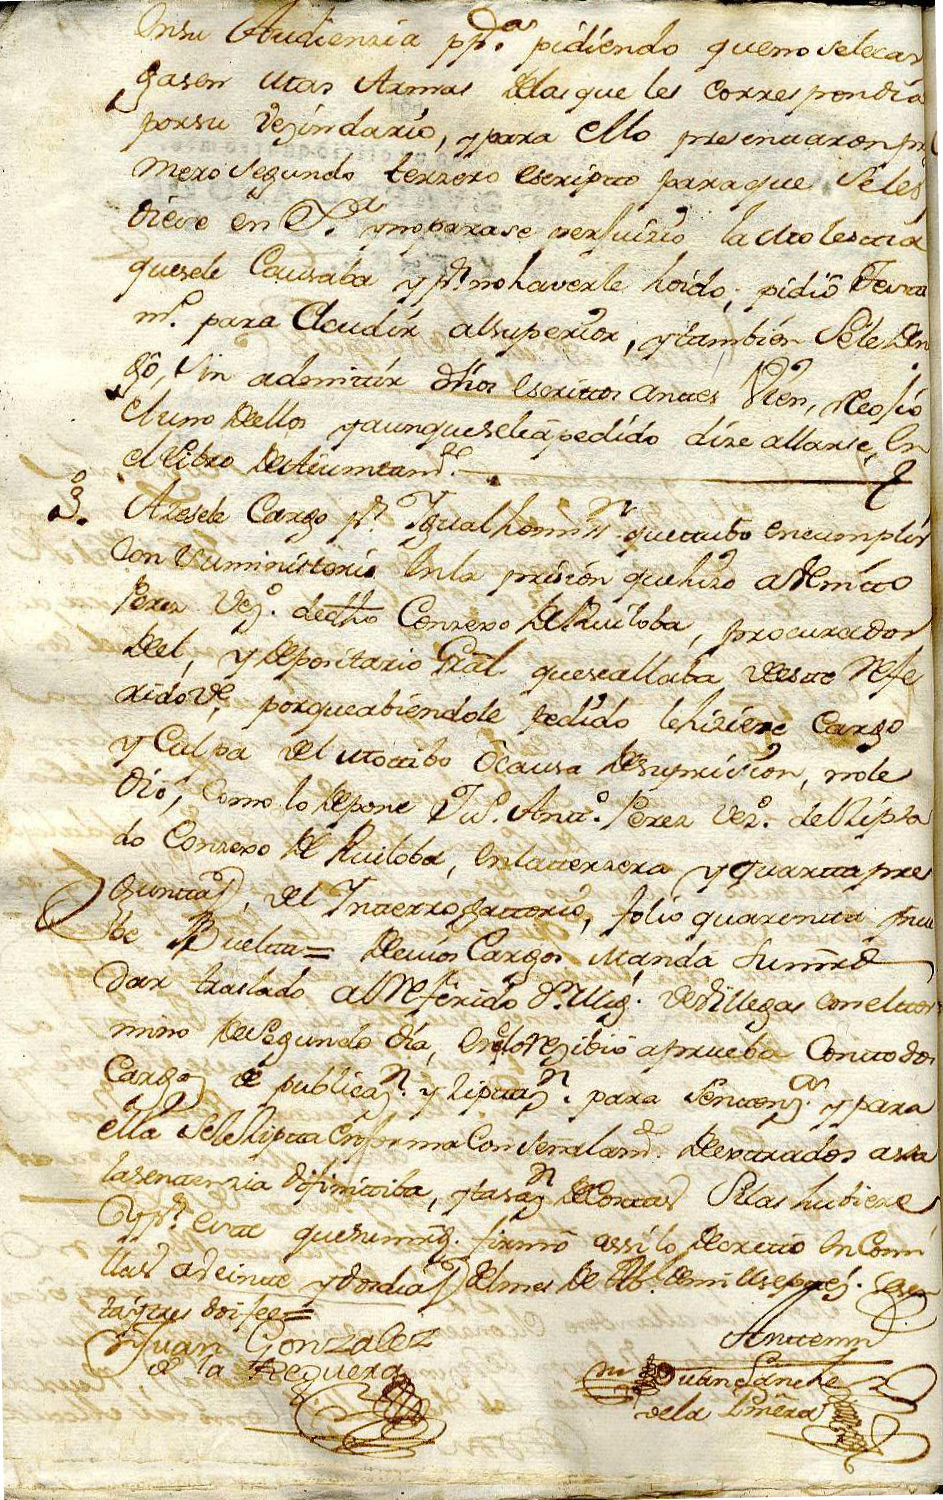 en su Audienzia pp.ca pidiendo que no se le car
gasen mas Armas de las que les correspondia
por su Vezindario, y para ello presentaron pri
mero segundo terzero escripto para que se les
diese en y no parase perjuizio la molestia
que se le Causaba y p.r no haverle hoido, pidió testi
m.o para Acudir al superior, y tambien se le den
gó, sin admitir dhos escritos antes bien, recojio
el uno dellos y aunque se le a pedido dize allarse, en
el Libro de Aiuntam.to
3.o Azesele Cargo p.r Igual homis.n que tubo en cumplir
con su ministerio en la prision que hizo a Benito
Perez Vez.o de dho Conzexo de Ruiloba, procurador
del, y depositario Gral. que se allaba deste refe
rido Ve, porque abiendole pedido le hiziese Cargo
y Culpa del motibo o causa de su prision, no le
dió, como lo depone Ju.o Ant.o Perez Vez.o del zita
do Conzexo de Ruiloba, en la terzera y quarta pre
guntas, del Interrogattorio, folio quarenta y nue
be Buelta = de cuios Cargos manda su mrd
dar traslado al referido D.n Mig.l de Villegas con el ter
mino de segundo dia, en q.e lo rezibió a prueba con todos
Cargos de publicaz.n y zitaz.n para sentenz.a y para
ella se le zita en forma con señalam.to de estrados asta
la sentenzia difinitiba, y tasaz.n de costas si las hubiere
y p.r este que su mrd. firmó assi lo decreto en Comi
llas a veinte y dos dias del mes de de mill setez.s sesen
ta y tres doi fee =
Juan Gonzalez
de la Reguera
Antemi
Juan Sanche
de la